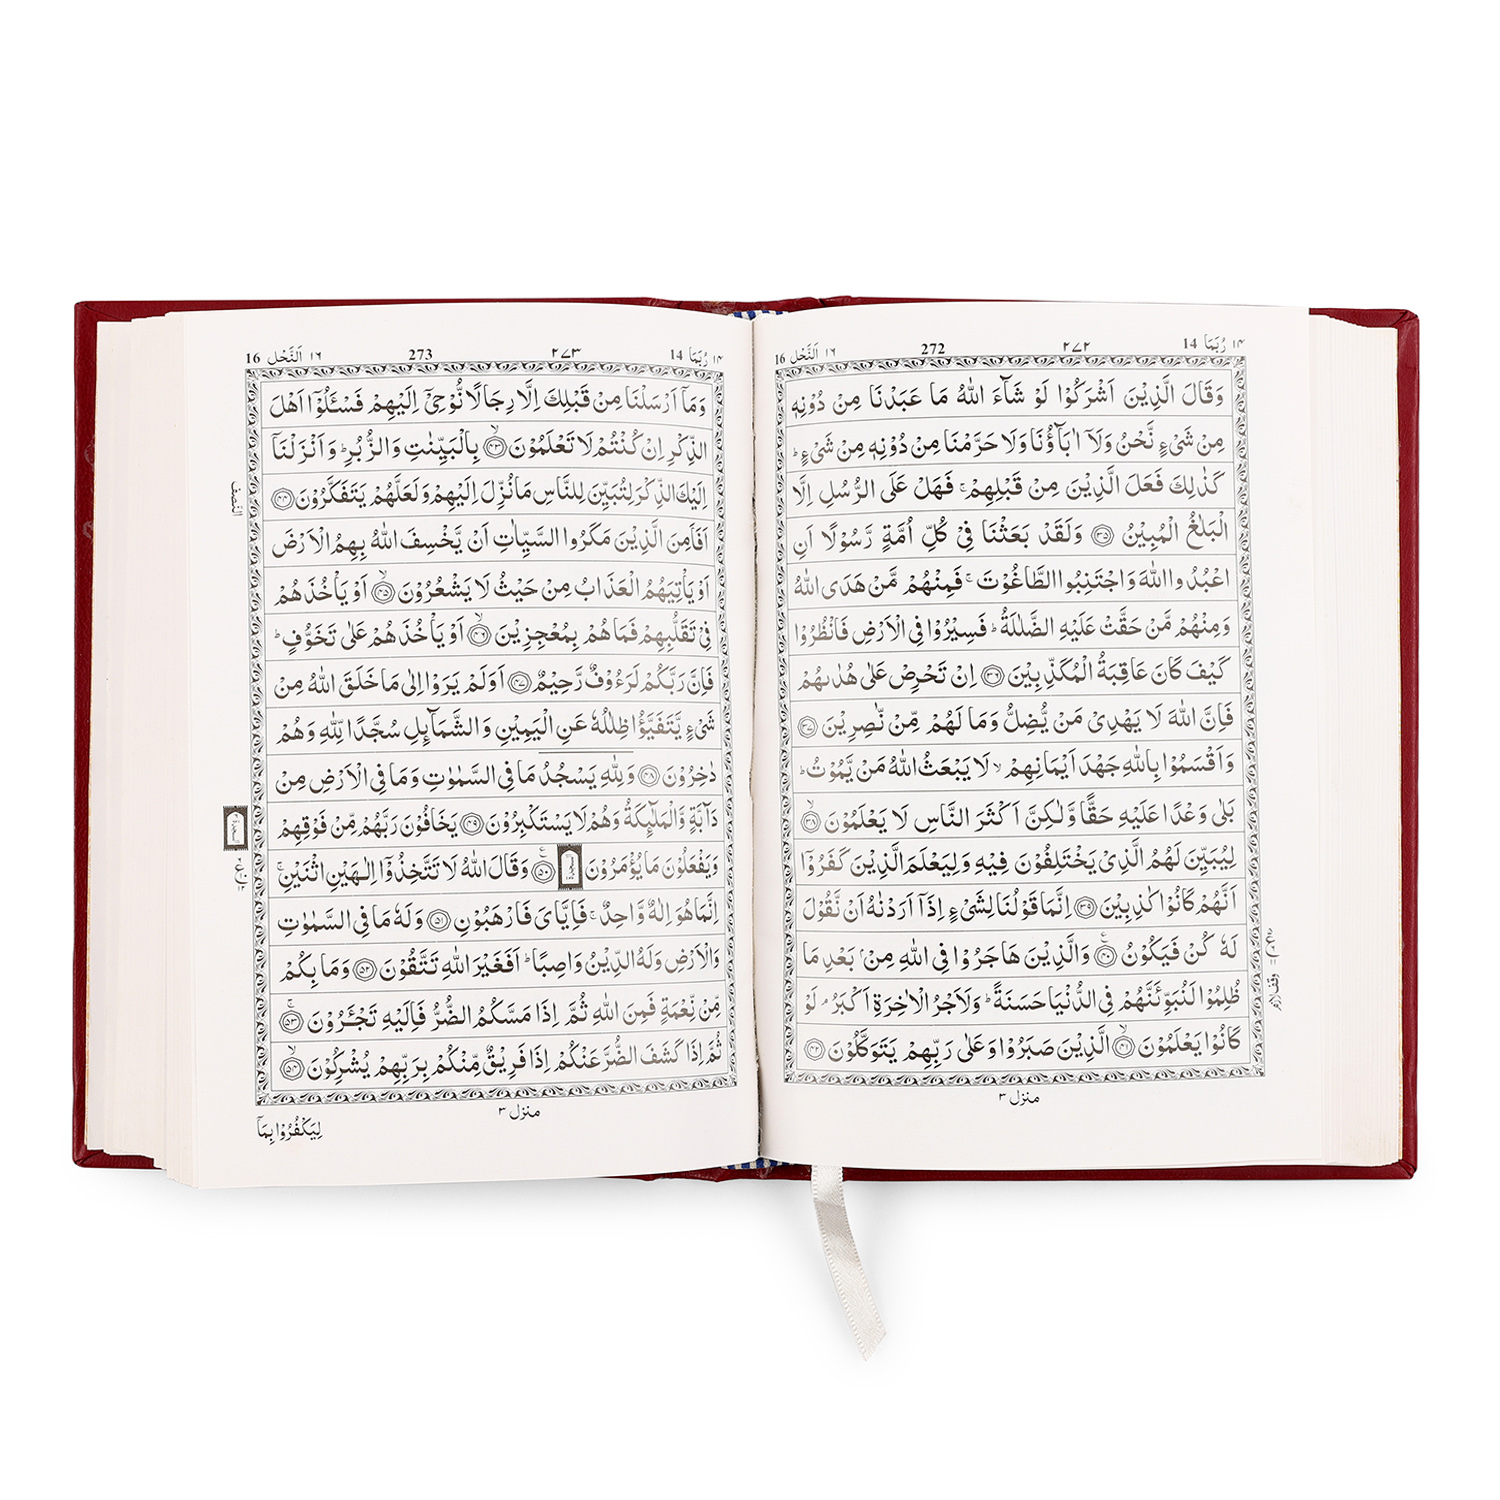 ١٤ رُبَمَا 14 ٢٧٢ 272 ١٦ اَلنَّحْل 16
وَقَالَ الَّذِيْنَ اَشْرَكُوْا لَوْ شَآءَ اللّٰهُ مَا عَبَدْنَا مِنْ دُوْنِهٖ
مِنْ شَىْءٍ نَّحْنُ وَلَاۤ اٰبَآؤُنَا وَلَا حَرَّمْنَا مِنْ دُوْنِهٖ مِنْ شَىْءٍ ؕ
كَذٰلِكَ فَعَلَ الَّذِيْنَ مِنْ قَبْلِهِمْ ۚ فَهَلْ عَلَى الرُّسُلِ اِلَّا
الْبَلٰغُ الْمُبِيْنُ ﴿٣٥﴾ وَلَقَدْ بَعَثْنَا فِىْ كُلِّ اُمَّةٍ رَّسُوْلًا اَنِ
اعْبُدُوا اللّٰهَ وَاجْتَنِبُوا الطَّاغُوْتَ ۚ فَمِنْهُمْ مَّنْ هَدَى اللّٰهُ
وَمِنْهُمْ مَّنْ حَقَّتْ عَلَيْهِ الضَّلٰلَةُ ؕ فَسِيْرُوْا فِى الْاَرْضِ فَانْظُرُوْا
كَيْفَ كَانَ عَاقِبَةُ الْمُكَذِّبِيْنَ ﴿٣٦﴾ اِنْ تَحْرِصْ عَلٰى هُدٰىهُمْ
فَاِنَّ اللّٰهَ لَا يَهْدِىْ مَنْ يُّضِلُّ وَمَا لَهُمْ مِّنْ نّٰصِرِيْنَ ﴿٣٧﴾
وَاَقْسَمُوْا بِاللّٰهِ جَهْدَ اَيْمَانِهِمْ ۙ لَا يَبْعَثُ اللّٰهُ مَنْ يَّمُوْتُ ؕ
بَلٰى وَعْدًا عَلَيْهِ حَقًّا وَّلٰكِنَّ اَكْثَرَ النَّاسِ لَا يَعْلَمُوْنَ ۙ﴿٣٨﴾
لِيُبَيِّنَ لَهُمُ الَّذِىْ يَخْتَلِفُوْنَ فِيْهِ وَلِيَعْلَمَ الَّذِيْنَ كَفَرُوْۤا
اَنَّهُمْ كَانُوْا كٰذِبِيْنَ ﴿٣٩﴾ اِنَّمَا قَوْلُنَا لِشَىْءٍ اِذَاۤ اَرَدْنٰهُ اَنْ نَّقُوْلَ
لَهٗ كُنْ فَيَكُوْنُ ﴿٤٠﴾ وَالَّذِيْنَ هَاجَرُوْا فِى اللّٰهِ مِنْۢ بَعْدِ مَا
ظُلِمُوْا لَنُبَوِّئَنَّهُمْ فِى الدُّنْيَا حَسَنَةً ؕ وَلَاَجْرُ الْاٰخِرَةِ اَكْبَرُ ۘ لَوْ
كَانُوْا يَعْلَمُوْنَ ۙ﴿٤١﴾ الَّذِيْنَ صَبَرُوْا وَعَلٰى رَبِّهِمْ يَتَوَكَّلُوْنَ ﴿٤٢﴾
وقف لازم
منزل ٣
١٤ رُبَمَا 14 ٢٧٣ 273 ١٦ اَلنَّحْل 16
وَمَاۤ اَرْسَلْنَا مِنْ قَبْلِكَ اِلَّا رِجَالًا نُّوْحِىْۤ اِلَيْهِمْ فَسْـَٔلُوْۤا اَهْلَ
الذِّكْرِ اِنْ كُنْتُمْ لَا تَعْلَمُوْنَ ۙ﴿٤٣﴾ بِالْبَيِّنٰتِ وَالزُّبُرِ ؕ وَاَنْزَلْنَاۤ
اِلَيْكَ الذِّكْرَ لِتُبَيِّنَ لِلنَّاسِ مَا نُزِّلَ اِلَيْهِمْ وَلَعَلَّهُمْ يَتَفَكَّرُوْنَ ﴿٤٤﴾
اَفَاَمِنَ الَّذِيْنَ مَكَرُوا السَّيِّاٰتِ اَنْ يَّخْسِفَ اللّٰهُ بِهِمُ الْاَرْضَ
اَوْ يَاْتِيَهُمُ الْعَذَابُ مِنْ حَيْثُ لَا يَشْعُرُوْنَ ۙ﴿٤٥﴾ اَوْ يَاْخُذَهُمْ
فِىْ تَقَلُّبِهِمْ فَمَا هُمْ بِمُعْجِزِيْنَ ۙ﴿٤٦﴾ اَوْ يَاْخُذَهُمْ عَلٰى تَخَوُّفٍ ؕ
فَاِنَّ رَبَّكُمْ لَرَءُوْفٌ رَّحِيْمٌ ﴿٤٧﴾ اَوَلَمْ يَرَوْا اِلٰى مَا خَلَقَ اللّٰهُ مِنْ
شَىْءٍ يَّتَفَيَّؤُا ظِلٰلُهٗ عَنِ الْيَمِيْنِ وَالشَّمَآئِلِ سُجَّدًا لِّلّٰهِ وَهُمْ
دٰخِرُوْنَ ﴿٤٨﴾ وَلِلّٰهِ يَسْجُدُ مَا فِى السَّمٰوٰتِ وَمَا فِى الْاَرْضِ مِنْ
دَآبَّةٍ وَّالْمَلٰٓئِكَةُ وَهُمْ لَا يَسْتَكْبِرُوْنَ ﴿٤٩﴾ يَخَافُوْنَ رَبَّهُمْ مِّنْ فَوْقِهِمْ
وَيَفْعَلُوْنَ مَا يُؤْمَرُوْنَ ﴿٥٠﴾ وَقَالَ اللّٰهُ لَا تَتَّخِذُوْۤا اِلٰهَيْنِ اثْنَيْنِ ۚ
اِنَّمَا هُوَ اِلٰهٌ وَّاحِدٌ ۚ فَاِيَّاىَ فَارْهَبُوْنِ ﴿٥١﴾ وَلَهٗ مَا فِى السَّمٰوٰتِ
وَالْاَرْضِ وَلَهُ الدِّيْنُ وَاصِبًا ؕ اَفَغَيْرَ اللّٰهِ تَتَّقُوْنَ ﴿٥٢﴾ وَمَا بِكُمْ
مِّنْ نِّعْمَةٍ فَمِنَ اللّٰهِ ثُمَّ اِذَا مَسَّكُمُ الضُّرُّ فَاِلَيْهِ تَجْـَٔرُوْنَ ۚ﴿٥٣﴾
ثُمَّ اِذَا كَشَفَ الضُّرَّ عَنْكُمْ اِذَا فَرِيْقٌ مِّنْكُمْ بِرَبِّهِمْ يُشْرِكُوْنَ ۙ﴿٥٤﴾
النصف
منزل ٣
لِيَكْفُرُوْا بِمَاۤ